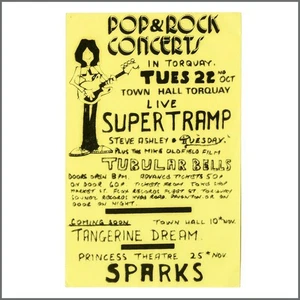 POP & ROCK
CONCERTS
IN TORQUAY.
TUES 22ND OCT
TOWN HALL TORQUAY
LIVE
SUPERTRAMP
STEVE ASHLEY & PUESDAY.
PLUS THE MIKE OLDFIELD FILM
TUBULAR BELLS
DOORS OPEN 8PM. ADVANCED TICKETS 50P
ON DOOR 60P. TICKETS FROM
MARKET ST. RECORDS FLEET ST. TORQUAY
SOUNDS RECORDS HYDE ROAD. PAIGNTON. OR ON
DOOR ON NIGHT.
COMING SOON TOWN HALL 10th NOV.
TANGERINE DREAM.
PRINCESS THEATRE 25th NOV
SPARKS